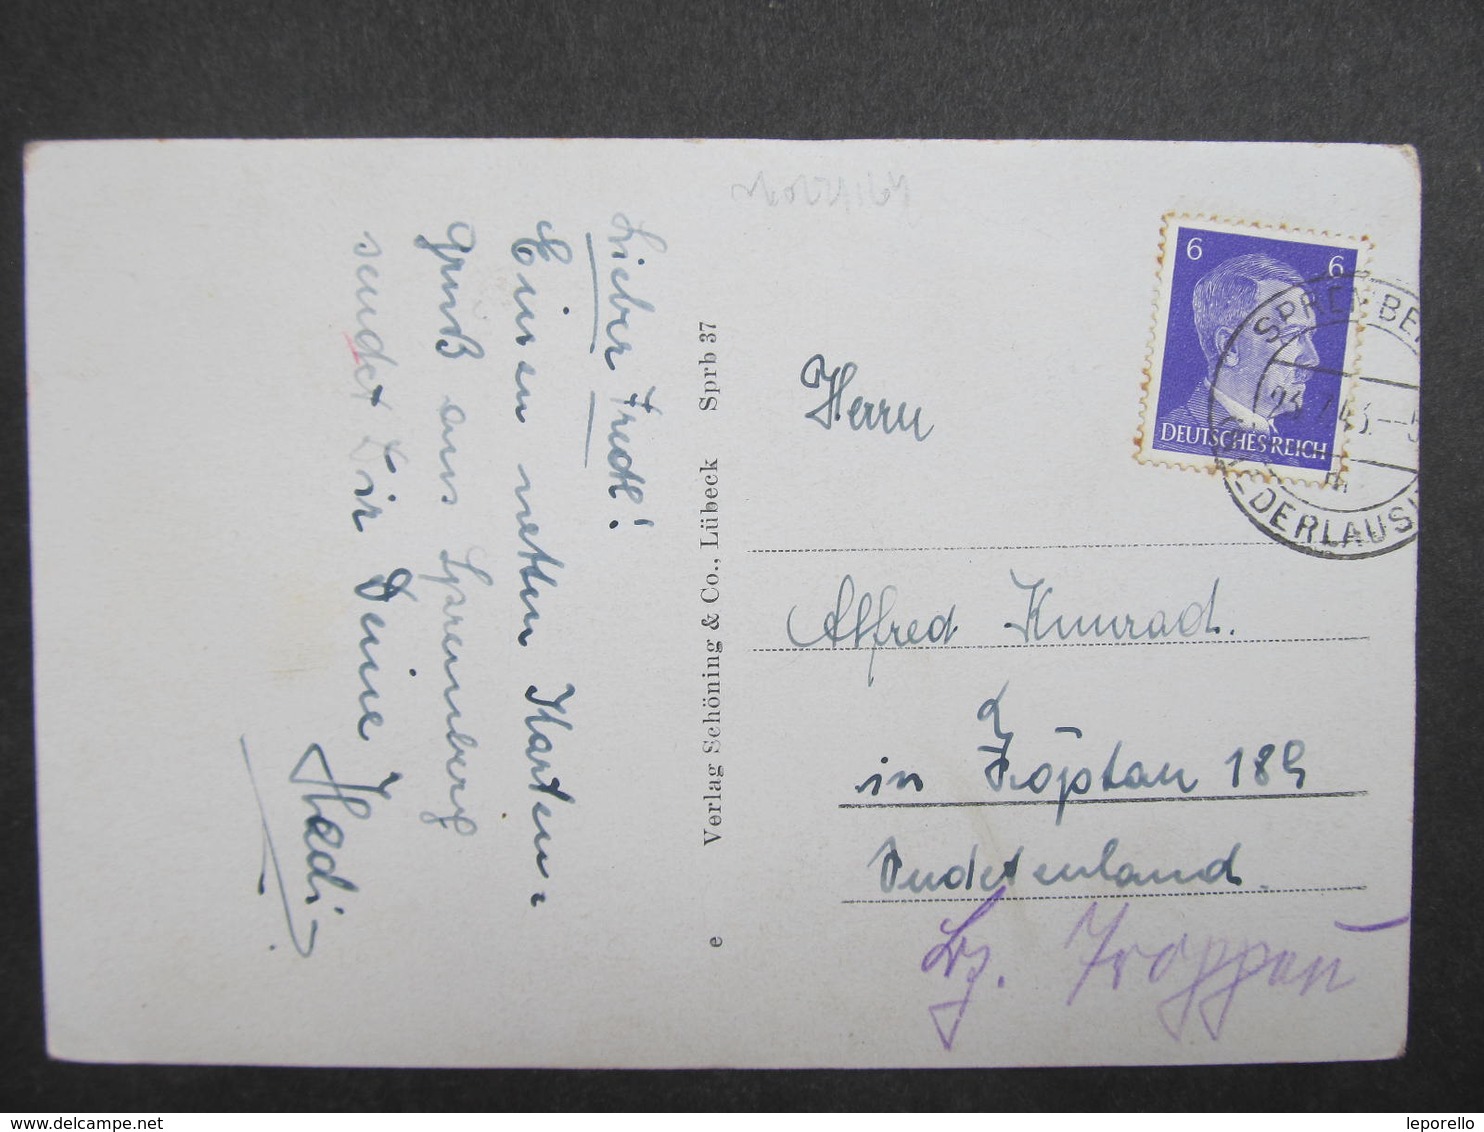 Lieber Fredl!
Einen netten Karten-
gruß aus Spremberg
sendet Dir Deine
Hedi
Verlag Schöning & Co., Lübeck Sprb 37
e
6 6
DEUTSCHES REICH
SPREMBE
23. 7.43.--5
m
DERLAUSI
Herrn
Alfred Kunrad.
in Zöptau 189
Sudetenland.
Bz. Troppau
delcampe.net
leporello